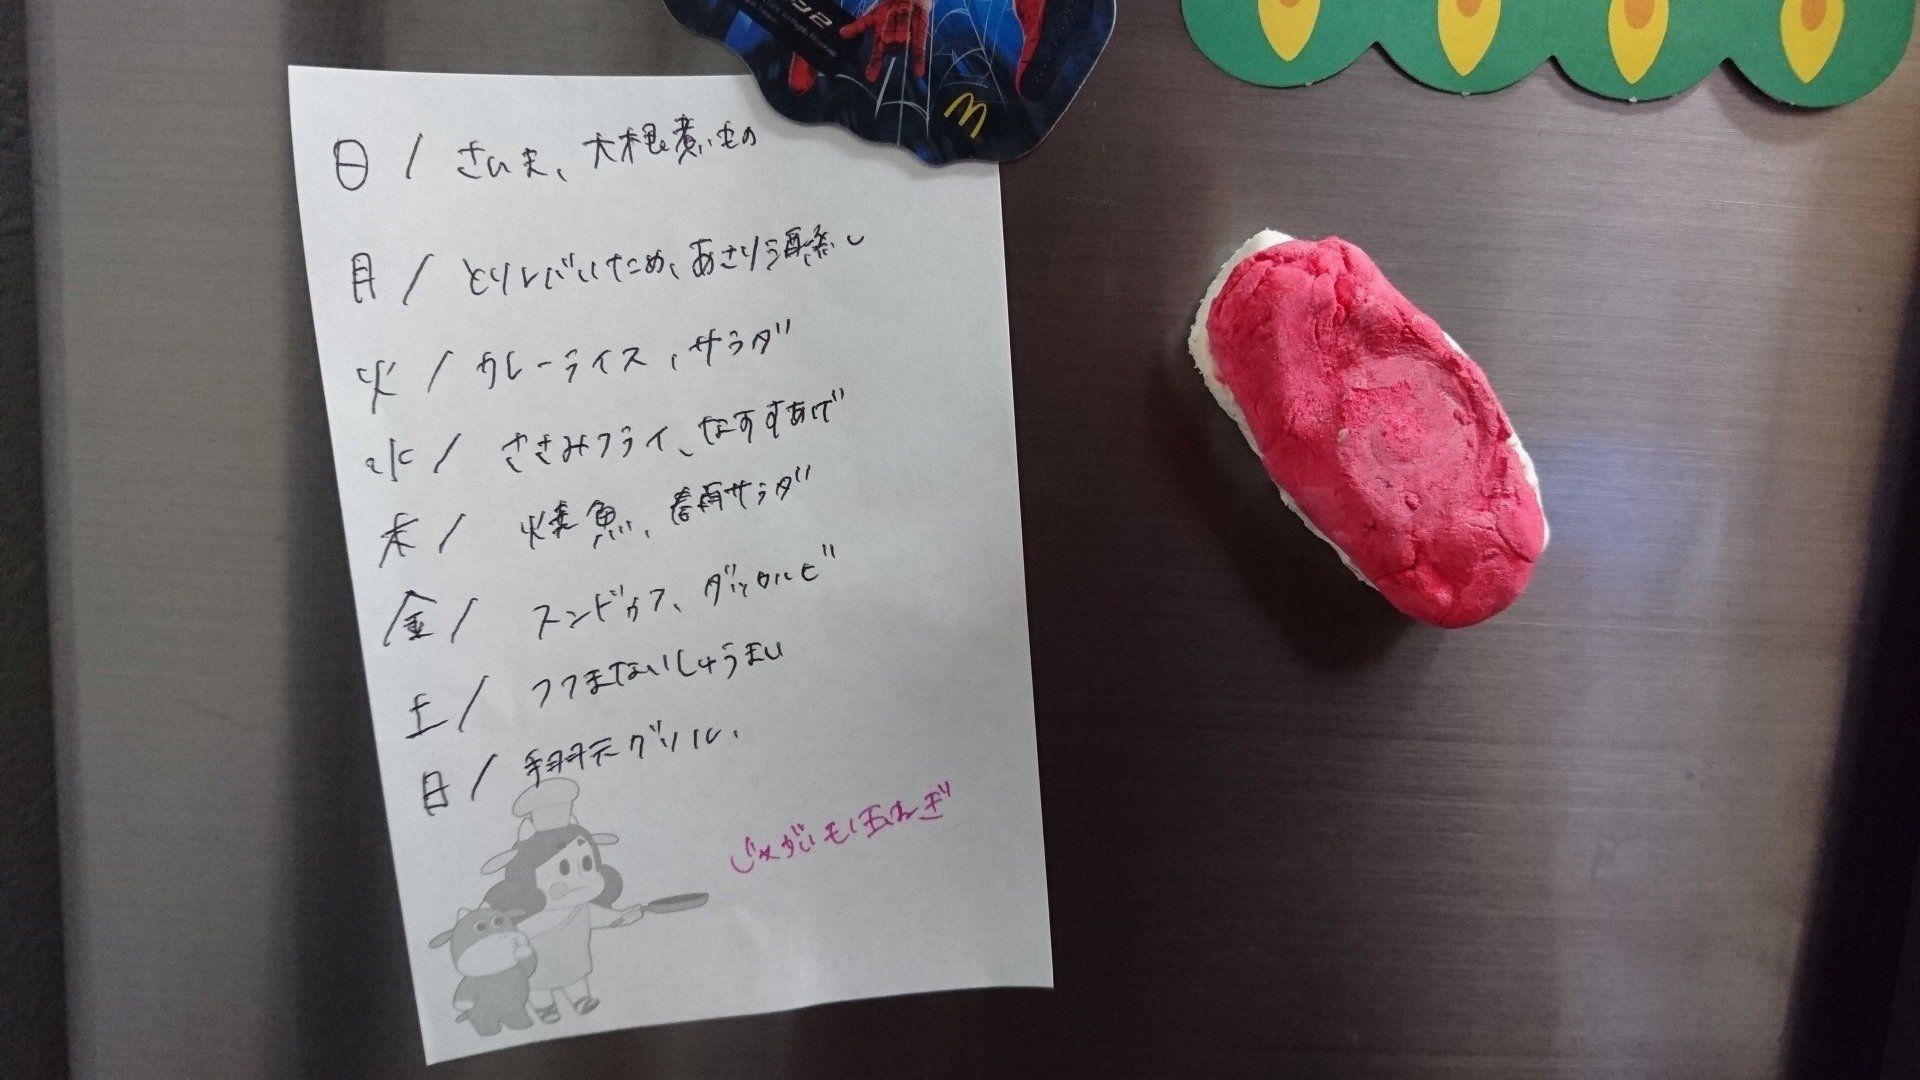 日/さんま、大根煮もの
月/とりレバいため、あさり酒蒸し
火/カレーライス、サラダ
水/ささみフライ、なすすあげ
木/焼魚、春雨サラダ
金/スンドゥブ、ダッカルビ
土/つつまないしゅうまい
日/手羽元グリル、
じゃがいも玉ねぎ